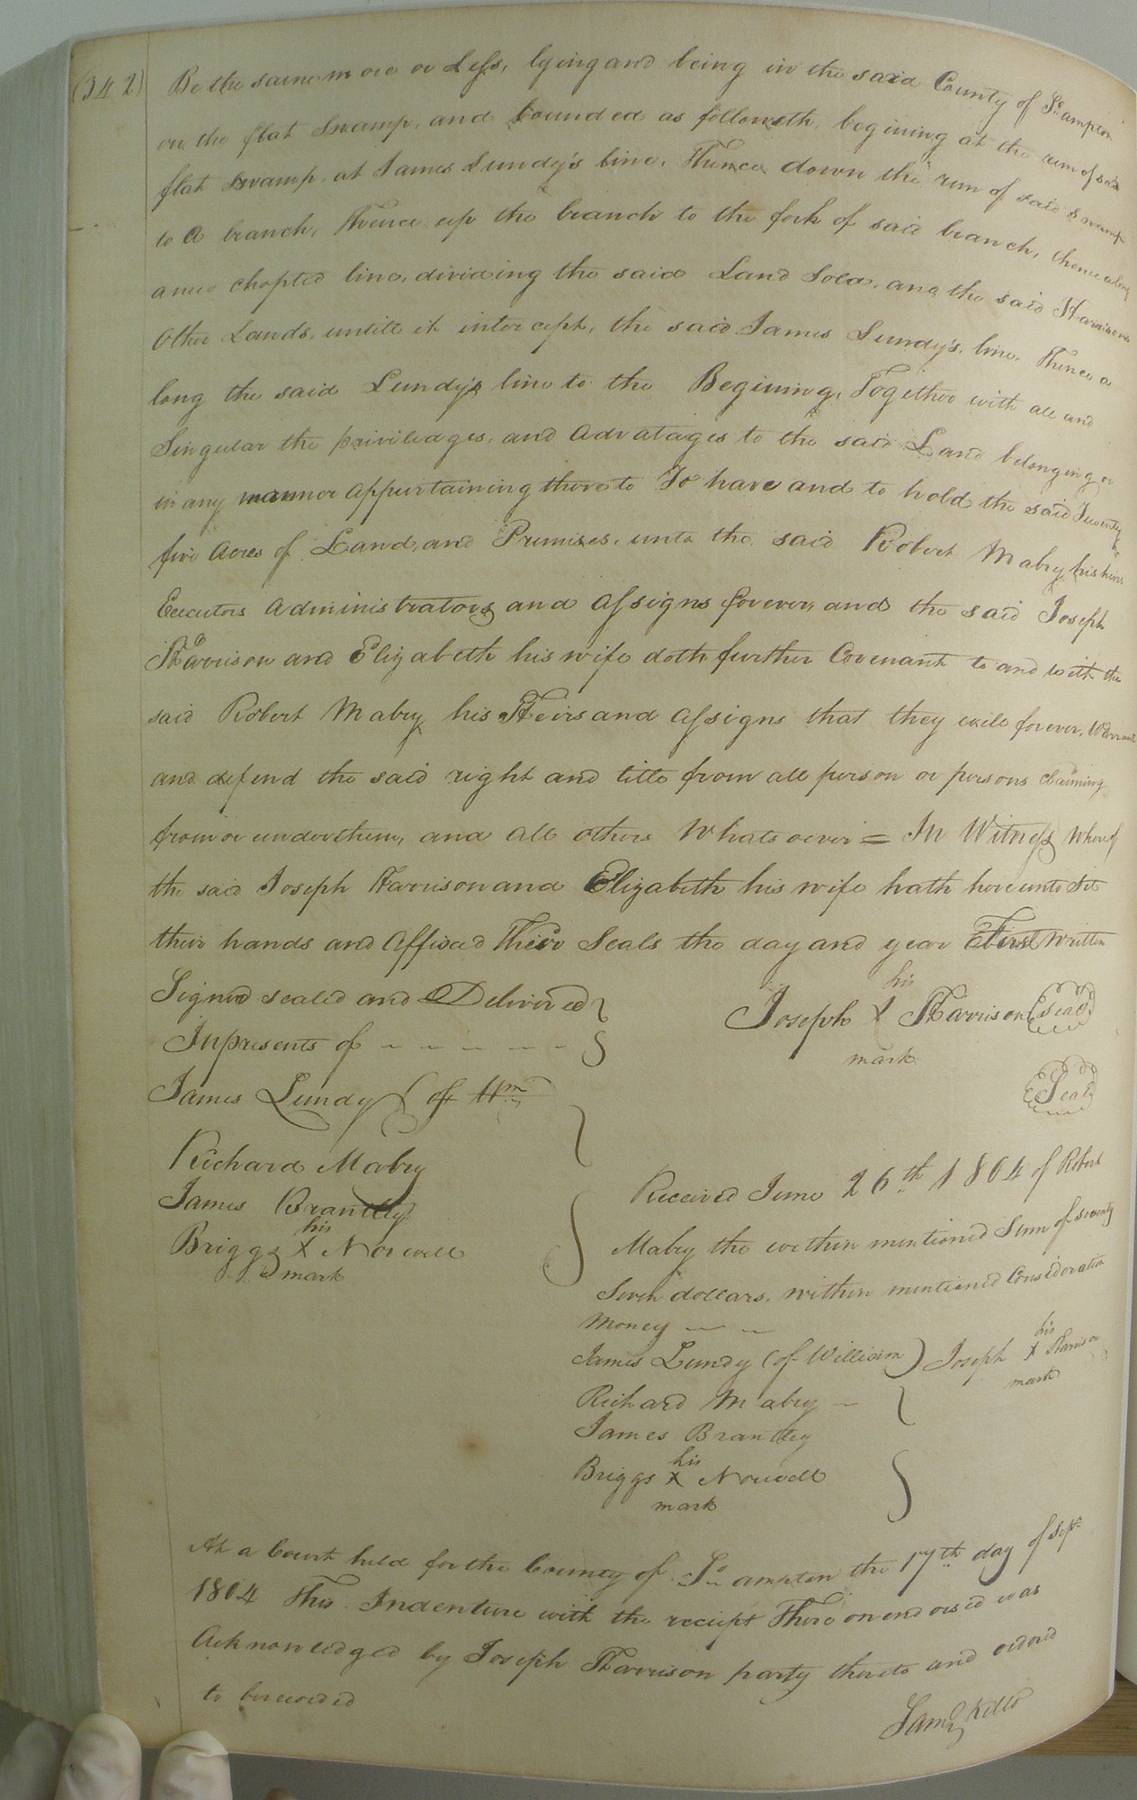 (342)
Be the same more or Less, lying and being in the said County of So. ampton
on the flat Swamp, and bounded as followeth, begining at the run of said
flat swamp at James Lundy's line, Thence down the run of said swamp
to a branch, Thence up the branch to the fork of said branch, thence along
a new chopted line, dividing the said Land Sold, and the said Harrisons
Other Lands, untill it intercept, the said James Lundy's, line. Thence a
long the said Lundy's line to the Begining, Together with all and
Singular the priviledges, and advatages to the said Land belonging or
in any manner appurtaining thereto To have and to hold the said Twenty
five Acres of Land, and Premises, unto the said Robert Mabry his heirs
Executors administrators and assigns forever, and the said Joseph
Harrison and Elizabeth his wife doth further Covenant to and with the
said Robert Mabry his Heirs and assigns that they will forever, Warrant
and defend the said right and title from all person or persons claiming
from or under them, and all others Whatsoever = In Witness Whereof
the said Joseph Harrison and Elizabeth his wife hath hereunto Set
their hands and affixed Their Seals the day and year First Written
Signed sealed and Delivered
In presents of
his
Joseph X Harrison (Seal)
mark
(Seal)
James Lundy (of Wm
Richard Mabry
James Brantley
his
Briggs X Norvell
mark
Received June 26th 1804 of Robert
Mabry the within mentioned Sum of seventy
Seven dollars. within mentioned Consideration
Money
James Lundy (of William)
his
Joseph X Harrison
mark
Richard Mabry
James Brantley
his
Briggs X Norvell
mark
At a Court held for the County of So. ampton the 17th day of Sept.
1804 This Indenture with the receipt Thereon endorsed was
Acknowledged by Joseph Harrison party thereto and ordered
to be recorded
Saml Kello